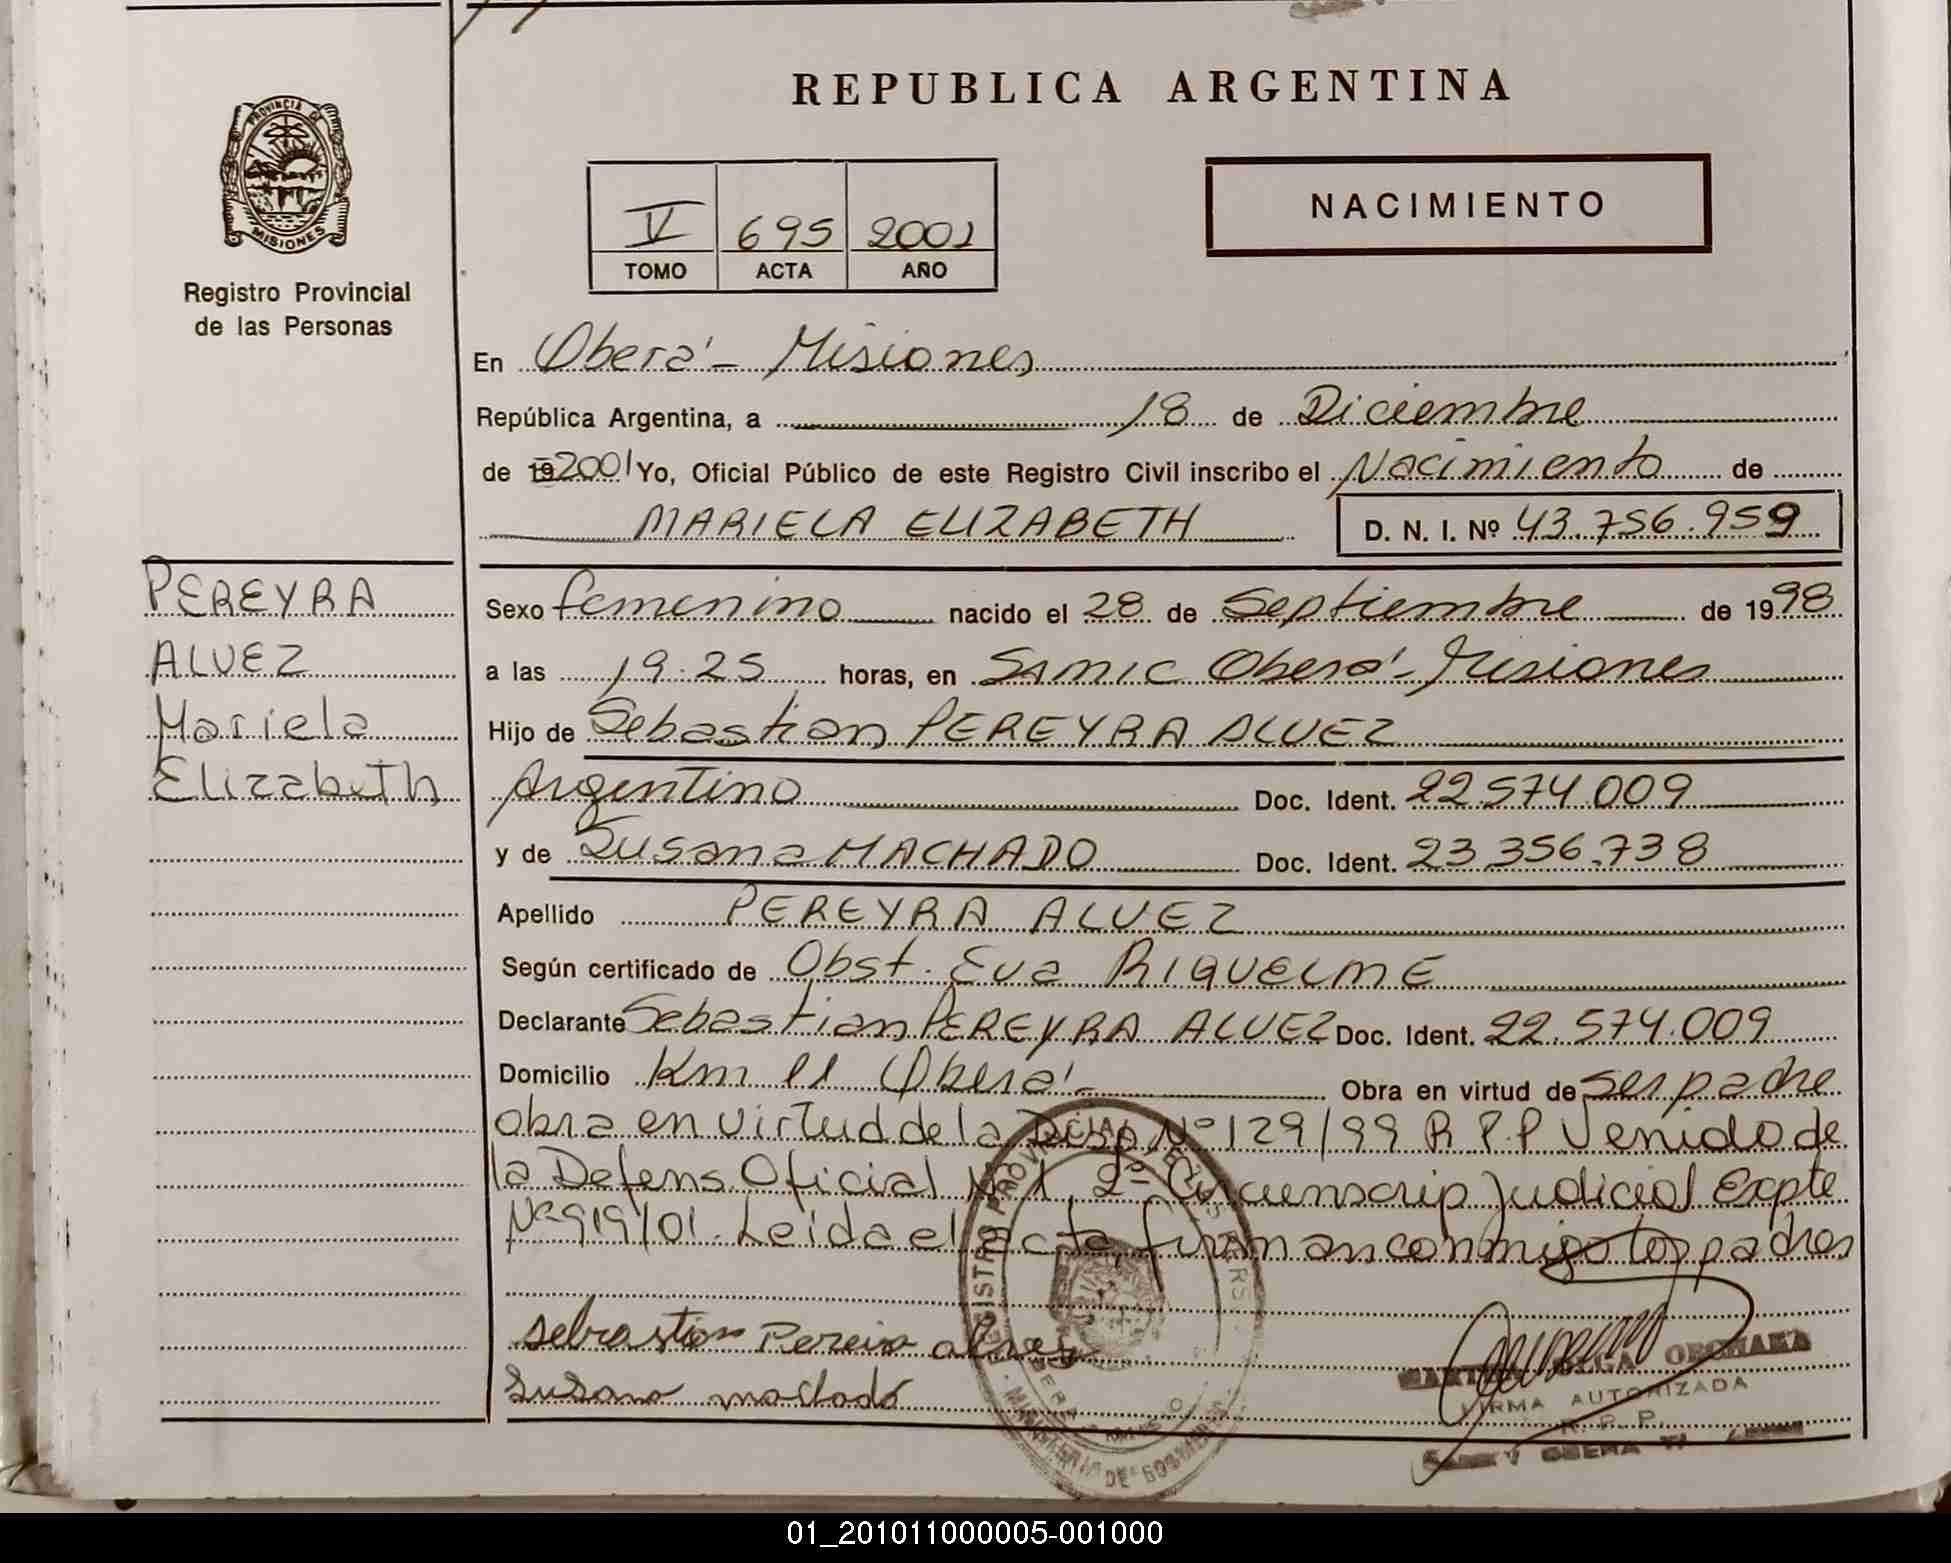 REPUBLICA ARGENTINA
PROVINCIA DE
MISIONES
Registro Provincial
de las Personas
V 695 2001
TOMO ACTA AÑO
NACIMIENTO
En Oberá - Misiones
República Argentina, a 18 de Diciembre
de 19 2001 Yo, Oficial Público de este Registro Civil inscribo el Nacimiento de
MARIELA ELIZABETH D. N. I. Nº 43.756.959
PEREYRA
ALVEZ
Mariela
Elizabeth
Sexo femenino nacido el 28 de Septiembre de 1998
a las 19:25 horas, en Samic Oberá - Misiones
Hijo de Sebastian PEREYRA ALVEZ
Argentino Doc. Ident. 22.574.009
y de Susana MACHADO Doc. Ident. 23.356.738
Apellido PEREYRA ALVEZ
Según certificado de Obst. Eva RIQUELME
Declarante Sebastian PEREYRA ALVEZ Doc. Ident. 22.574.009
Domicilio Km 11 Oberá - Obra en virtud de ser padre
obra en virtud de la Disp Nº 129/99 R.P.P Venido de
la Defens. Oficial Nº 1 2º Circunscrip Judicial Expte
Nº 919/01. Leida el acta, firman conmigo los padres
sebastian Pereira alves
Susana machado
OLGA
FIRMA AUTORIZADA
R. P. P.
MINISTERIO DE GOBIERNO
01_201011000005-001000